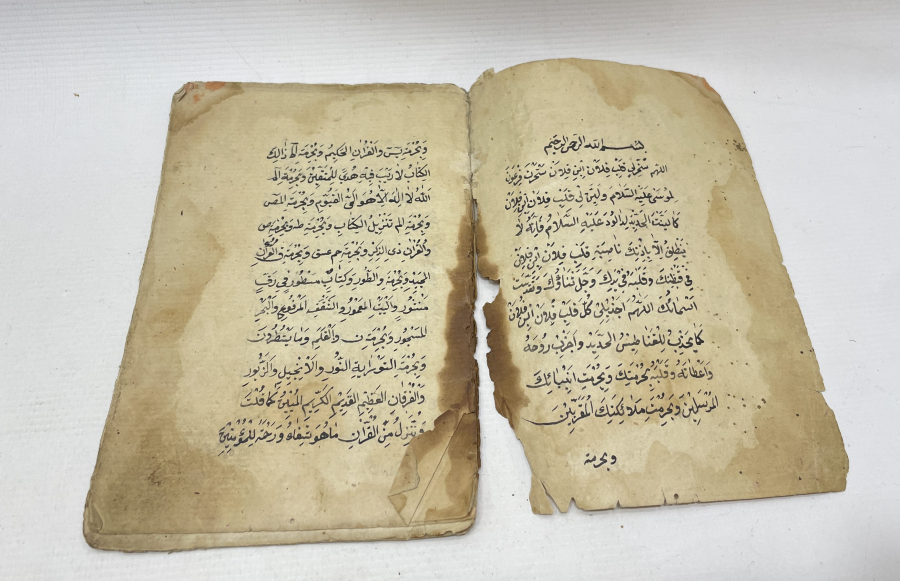 بسم الله الرحمن الرحيم
اللهم سخر لي قلب فلان ابن فلان كما سخرت فرعون
لموسى عليه السلام ولين لي قلب فلان ابن فلان
كما لينت الحديد لداود عليه السلام فانه لا
ينطق الا باذنك ناصية قلب فلان ابن فلان
في قبضتك وقلبه في يدك وجل ثناؤك وتقدست
اسمائك اللهم اجذب لي كل قلب فلان ابن فلان
كما يجذب المغناطيس الحديد واجذب روحه
واعضائه وقلبه بحرمتك وبحرمت انبيائك
المرسلين وبحرمت ملائكتك المقربين
وبحرمة
وبحرمة يس والقران الحكيم وبحرمة الم ذالك
الكتاب لا ريب فيه هدى للمتقين وبحرمة الم
الله لا اله الا هو الحي القيوم وبحرمة المص
وبحرمة الم تنزيل الكتاب وبحرمة طه وبحرمة ص
والقران ذى الذكر وبحرمة حم عسق وبحرمة ق والقران
المجيد وبحرمة والطور وكتاب مسطور في رق
منشور والبيت المعمور والسقف المرفوع والبحر
المسجور وبحرمة ن والقلم وما يسطرون
وبحرمة التوراية النور والانجيل والزبور
والفرقان العظيم القديم الكريم المبين كما قلت
وننزل من القران ما هو شفاء ورحمة للمؤمنين